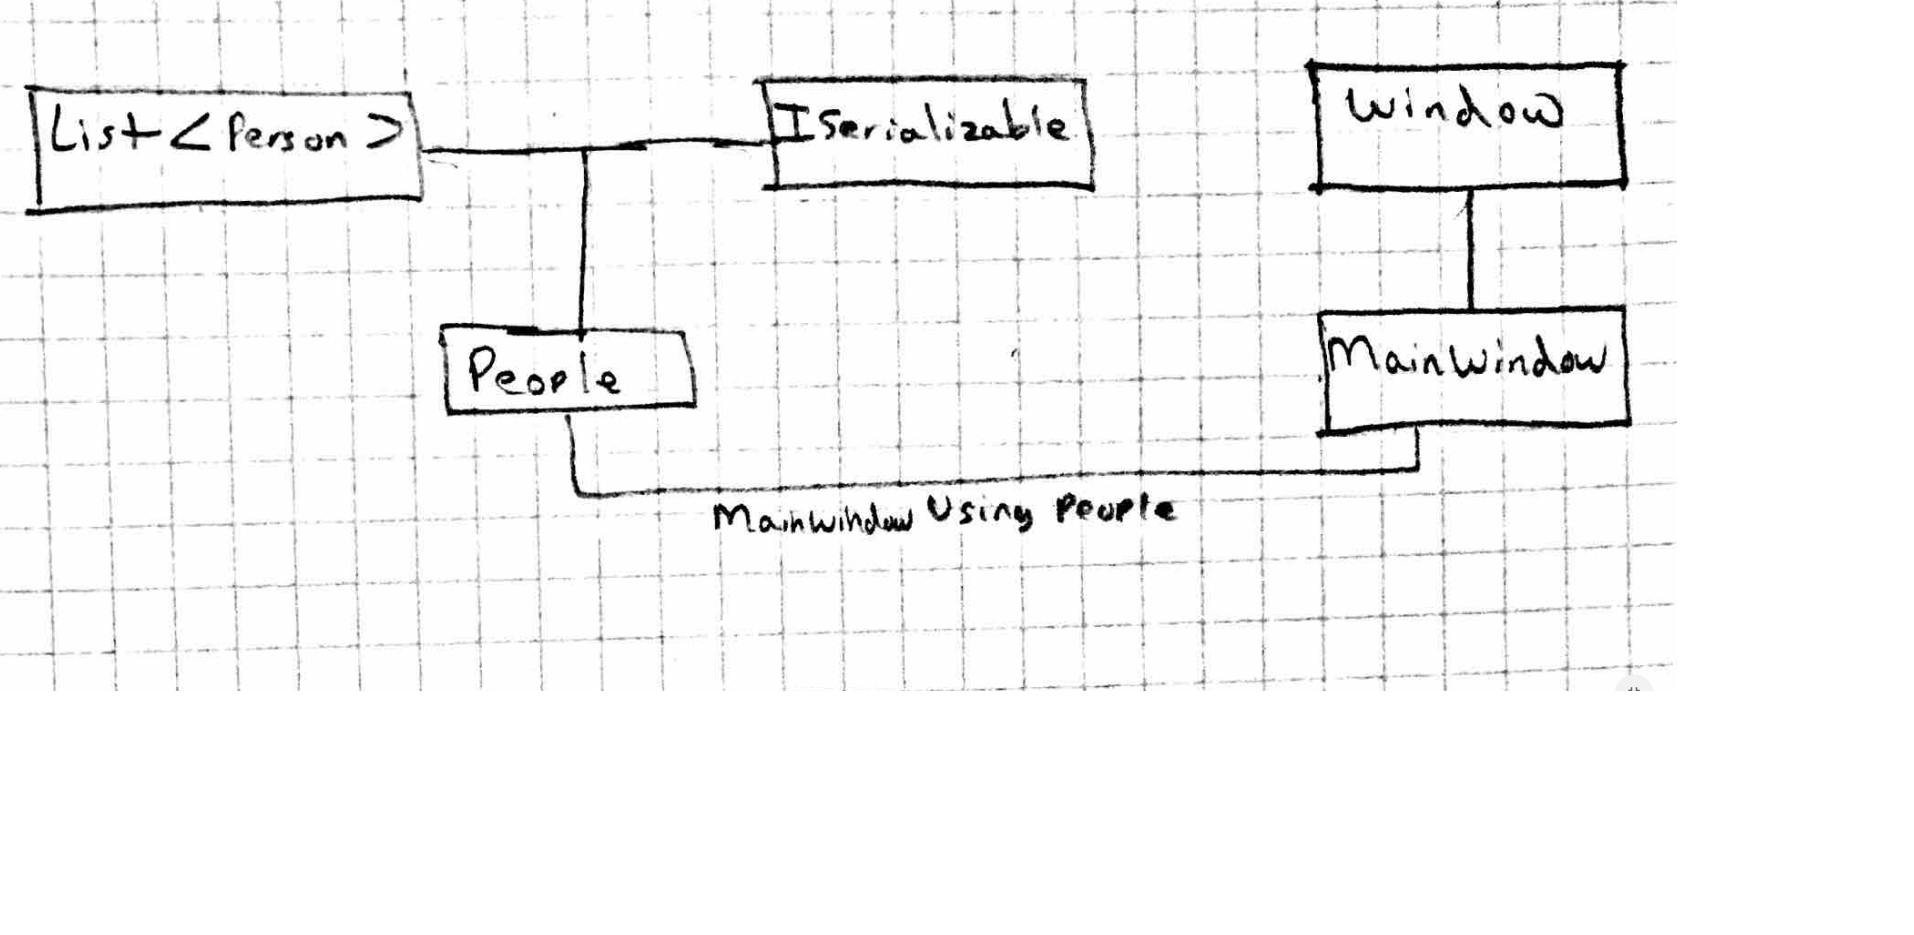 List<Person>
ISerializable
Window
People
MainWindow
MainWindow Using People